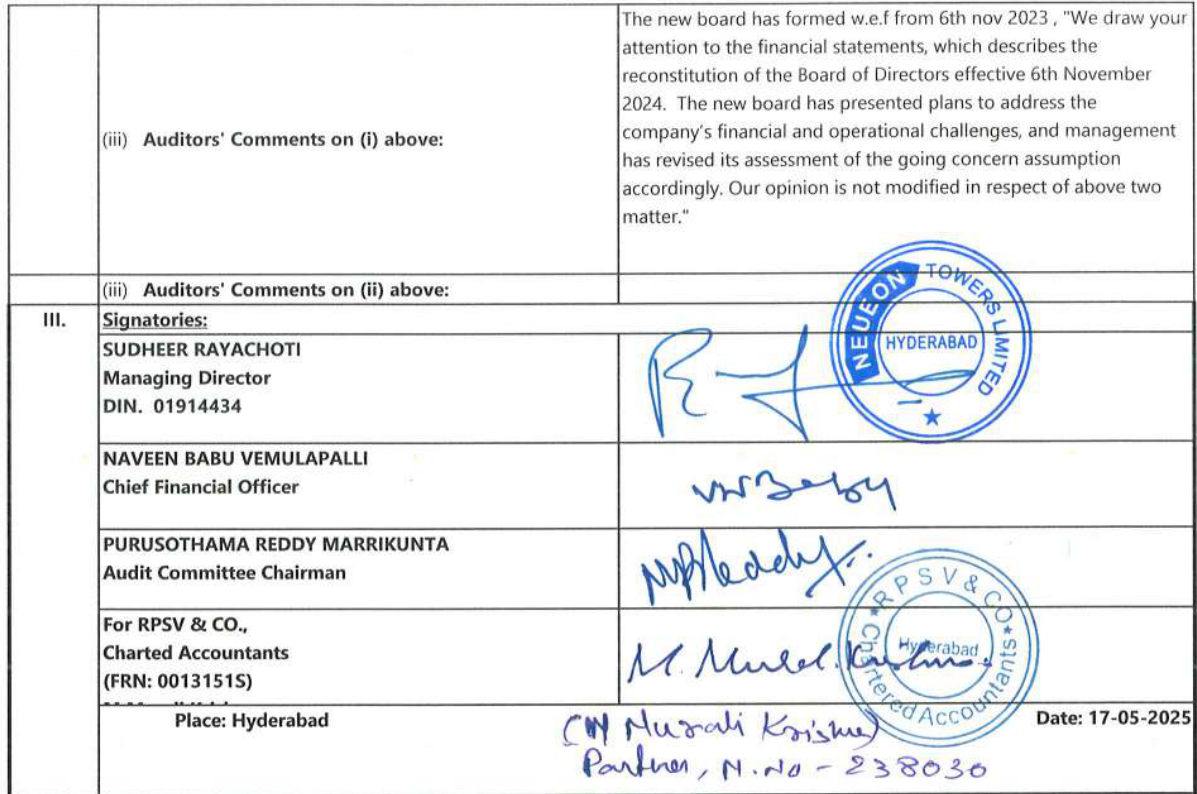 The new board has formed w.e.f from 6th nov 2023 , "We draw your
attention to the financial statements, which describes the
reconstitution of the Board of Directors effective 6th November
2024. The new board has presented plans to address the
(iii) Auditors' Comments on (i) above:
company's financial and operational challenges, and management
has revised its assessment of the going concern assumption
accordingly. Our opinion is not modified in respect of above two
matter."
(iii) Auditors' Comments on (ii) above:
III. Signatories:
SUDHEER RAYACHOTI
Managing Director
DIN. 01914434
NEUEON TOWERS LIMITED
HYDERABAD
NAVEEN BABU VEMULAPALLI
Chief Financial Officer
PURUSOTHAMA REDDY MARRIKUNTA
Audit Committee Chairman
MPReddy.
For RPSV & CO.,
Charted Accountants
(FRN: 0013151S)
RPSV & CO
Chartered Accountants
Hyderabad
Place: Hyderabad
(M Murali Krishna)
Partner, M.No - 238030
Date: 17-05-2025